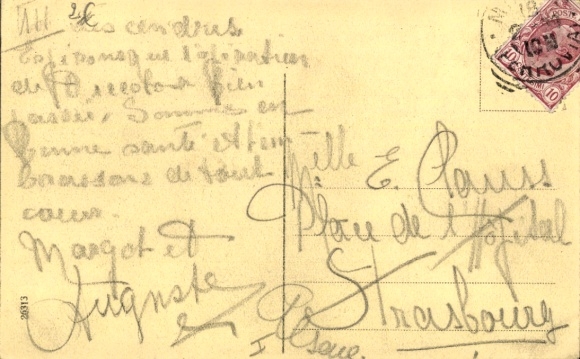 les cendres
Espérons que l'opération
de Nicolas bien
passée. Sommes en
bonne santé et t'em
brassons de tout
cœur.
Margot et
Auguste
Mlle E. Clauss
Place de l'Hôpital
Strasbourg
Alsace.
26313
10